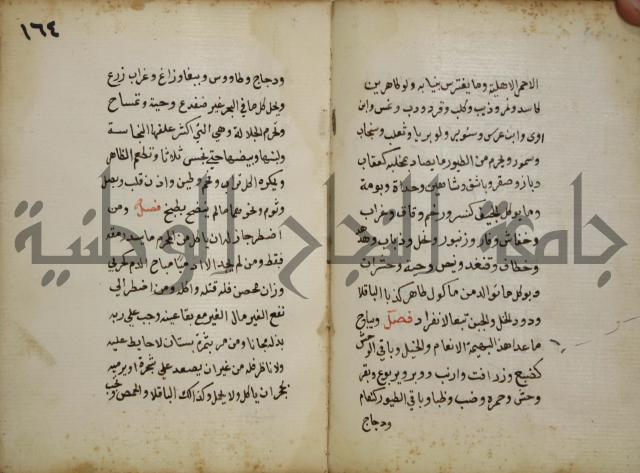 الاحمر الاهلية وما يفترس بنيابه ولو طاهر ين
كاسد ونمر وذيب وكلب وقرد ودب ونمس وابن
اوى وابن عرس وسنور ولو بريا وثعلب وسنجاب
وسمور ويحرم من الطيور ما يصاد بمخلبه كعقاب
وباز وصقر وباشق وشاهين وحداة وبومة
وما ياكل الجيف كنسر ورخم وقاق وغراب
وخفاش وفار وزنبور ونحل وذباب وهدهد
وخطاف وقنفد ونيص وحية وحشرات
ويوكل ما تولد من ماكول طاهر كذباب الباقلا
ودود الخل والجبن تبعا لا انفراد فصل ويباح
ما عدا هذا كبهيمة الانعام والخيل وباقي الوحش
كضبع وزرافة وارنب ووبر ويربوع وبقر
وحش وحمره وضب وظبا وباقي الطيور كنعام
ودجاج
١٦٤
ودجاج وطاووس وببغا وزاغ وغراب زرع
ويحل كل ما في البحر غير ضفدع وحية وتمساح
وتحرم الجلالة وهي التي اكثر علفها النجاسة
ولبنها وبيضها حتى تحبس ثلاثا وتطعم الطاهر
ويكره اكل تراب وفحم وطين واذن قلب وبصل
وثوم ونحوهما ما لم ينضج بطبخ فصل ومن
اضطر جاز له ان ياكل من المحرم ما يسد رمقه
فقط ومن لم يجد الا ادميا مباح الدم كحربي
وزان محصن فله قتله واكله ومن اضطر الى
نفع مال الغير مع بقا عينه وجب على ربه
بذله مجانا ومن مر بثمرة بستان لا حايط عليه
ولا ناظر فله من غير ان يصعد على شجرة او يرميه
بحجر ان ياكل ولا يحمل وكذلك الباقلا والحمص وتجب
جامعة النجاح الوطنية